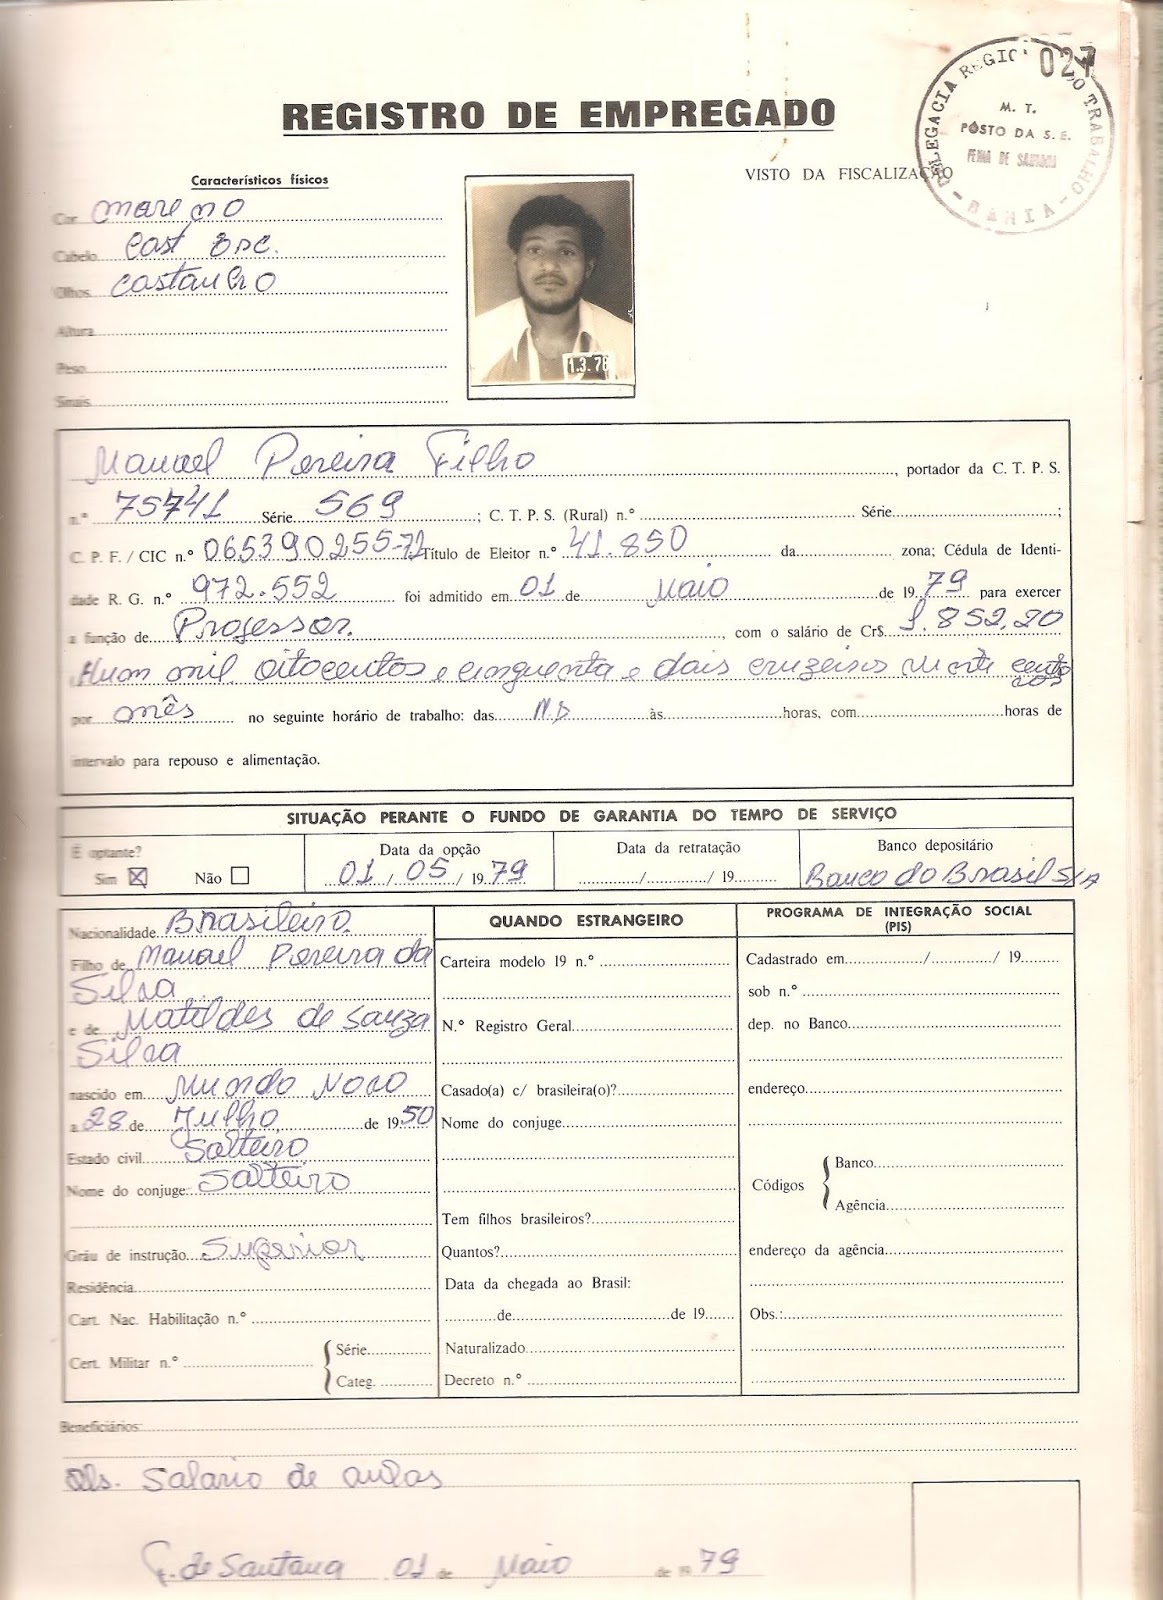 027
DELEGACIA REGIONAL DO TRABALHO
M. T.
POSTO DA S. E.
FEIRA DE SANTANA
- BAHIA -
REGISTRO DE EMPREGADO
VISTO DA FISCALIZAÇÃO
Característicos físicos
Cor moreno
Cabelo cast esc.
Olhos castanho
Altura
Peso
Sinais
1.3.78
Manoel Pereira Filho, portador da C. T. P. S.
n.º 75741 Série 569; C. T. P. S. (Rural) n.º Série;
C. P. F. / CIC n.º 065390255-72 Título de Eleitor n.º 41.850 da zona; Cédula de Identi-
dade R. G. n.º 972.552 foi admitido em 01 de Maio de 1979 para exercer
a função de Professor., com o salário de Cr$ 1.852,20
Hum mil oitocentos e cinquenta e dois cruzeiros vinte centavos
por mês no seguinte horário de trabalho: das às horas, com horas de
intervalo para repouso e alimentação.
SITUAÇÃO PERANTE O FUNDO DE GARANTIA DO TEMPO DE SERVIÇO
É optante?
Sim ☒ Não ☐
Data da opção
01 / 05 / 1979
Data da retratação
/ / 19
Banco depositário
Banco do Brasil S/A
Nacionalidade Brasileiro.
Filho de Manoel Pereira da
Silva
e de Matildes de Souza
Silva
nascido em Mundo Novo
a 28 de Julho de 1950
Estado civil Solteiro
Nome do conjuge: Solteiro
Gráu de instrução Superior
Residência
Cart. Nac. Habilitação n.º
Cert. Militar n.º
Série
Categ.
QUANDO ESTRANGEIRO
Carteira modelo 19 n.º
N.º Registro Geral
Casado(a) c/ brasileira(o)?
Nome do conjuge
Tem filhos brasileiros?
Quantos?
Data da chegada ao Brasil:
de de 19
Naturalizado
Decreto n.º
PROGRAMA DE INTEGRAÇÃO SOCIAL
(PIS)
Cadastrado em / / 19
sob n.º
dep. no Banco
endereço
Códigos
Banco
Agência
endereço da agência
Obs.:
Beneficiários:
Obs. Salario de aulas
F. de Santana 01 de Maio de 1979